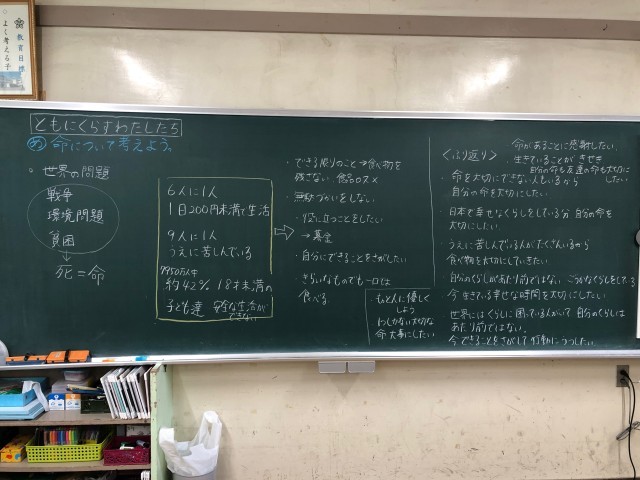 教育目標
よく考える子
ともにくらすわたしたち
め 命について考えよう。
世界の問題
戦争
環境問題
貧困
↓
死=命
6人に1人
1日200円未満で生活
9人に1人
うえに苦しんでいる
7950万人中
約42% 18才未満の
子ども達 安全な生活が
できない
・できる限りのこと→食べ物を
残さない 食品ロス×
・無駄づかいをしない
・役に立つことをしたい
→募金
・自分にできることをさがしたい
・きらいなものでも一口は
食べる
・もっと人に優しく
しよう
命大事にしたい
<ふり返り>
命があることに感謝したい。
・生きていることがきせき
自分の命も友達の命も大切に
したい
・命を大切にできない人もいるから
自分の命を大切にしたい。
・日本で幸せなくらしをしている分 自分の命を
大切にしたい
・うえに苦しんでいる人がたくさんいるから
食べ物を大切にしていきたい
・自分のくらしがあたり前ではない
今生きている幸せな時間を大切にしたい
・世界にはくらしに困っている人がいて 自分のくらしは
あたり前ではない。
今できることをさがして行動にうつしたい。